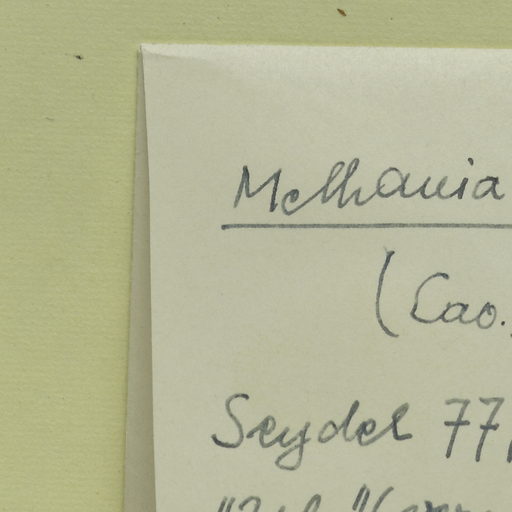 Melhania
(Cao.
Seydel 77